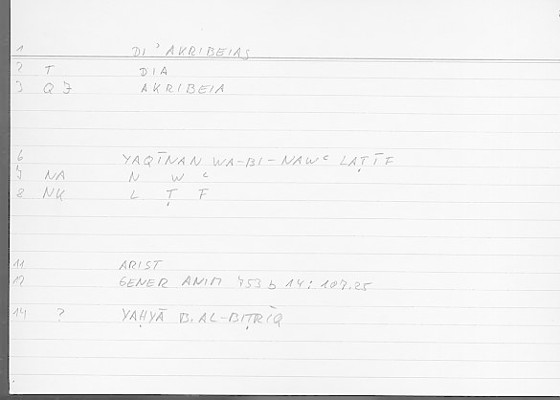 1 DI' AKRIBEIAS
2 T DIA
3 Q J AKRIBEIA
6 YAQĪNAN WA-BI-NAWᶜ LAṬĪF
7 NA N W ᶜ
8 NK L Ṭ F
11 ARIST
12 GENER ANIM 753 b 14 : 107.25
14 ? YAḤYĀ B. AL-BIṬRĪQ